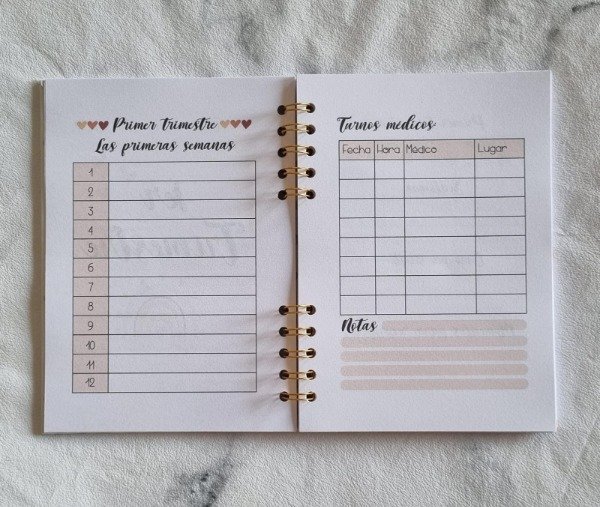 Primer trimestre
Las primeras semanas
1
2
3
4
5
6
7
8
9
10
11
12
Turnos médicos:
Fecha Hora Médico Lugar
Notas